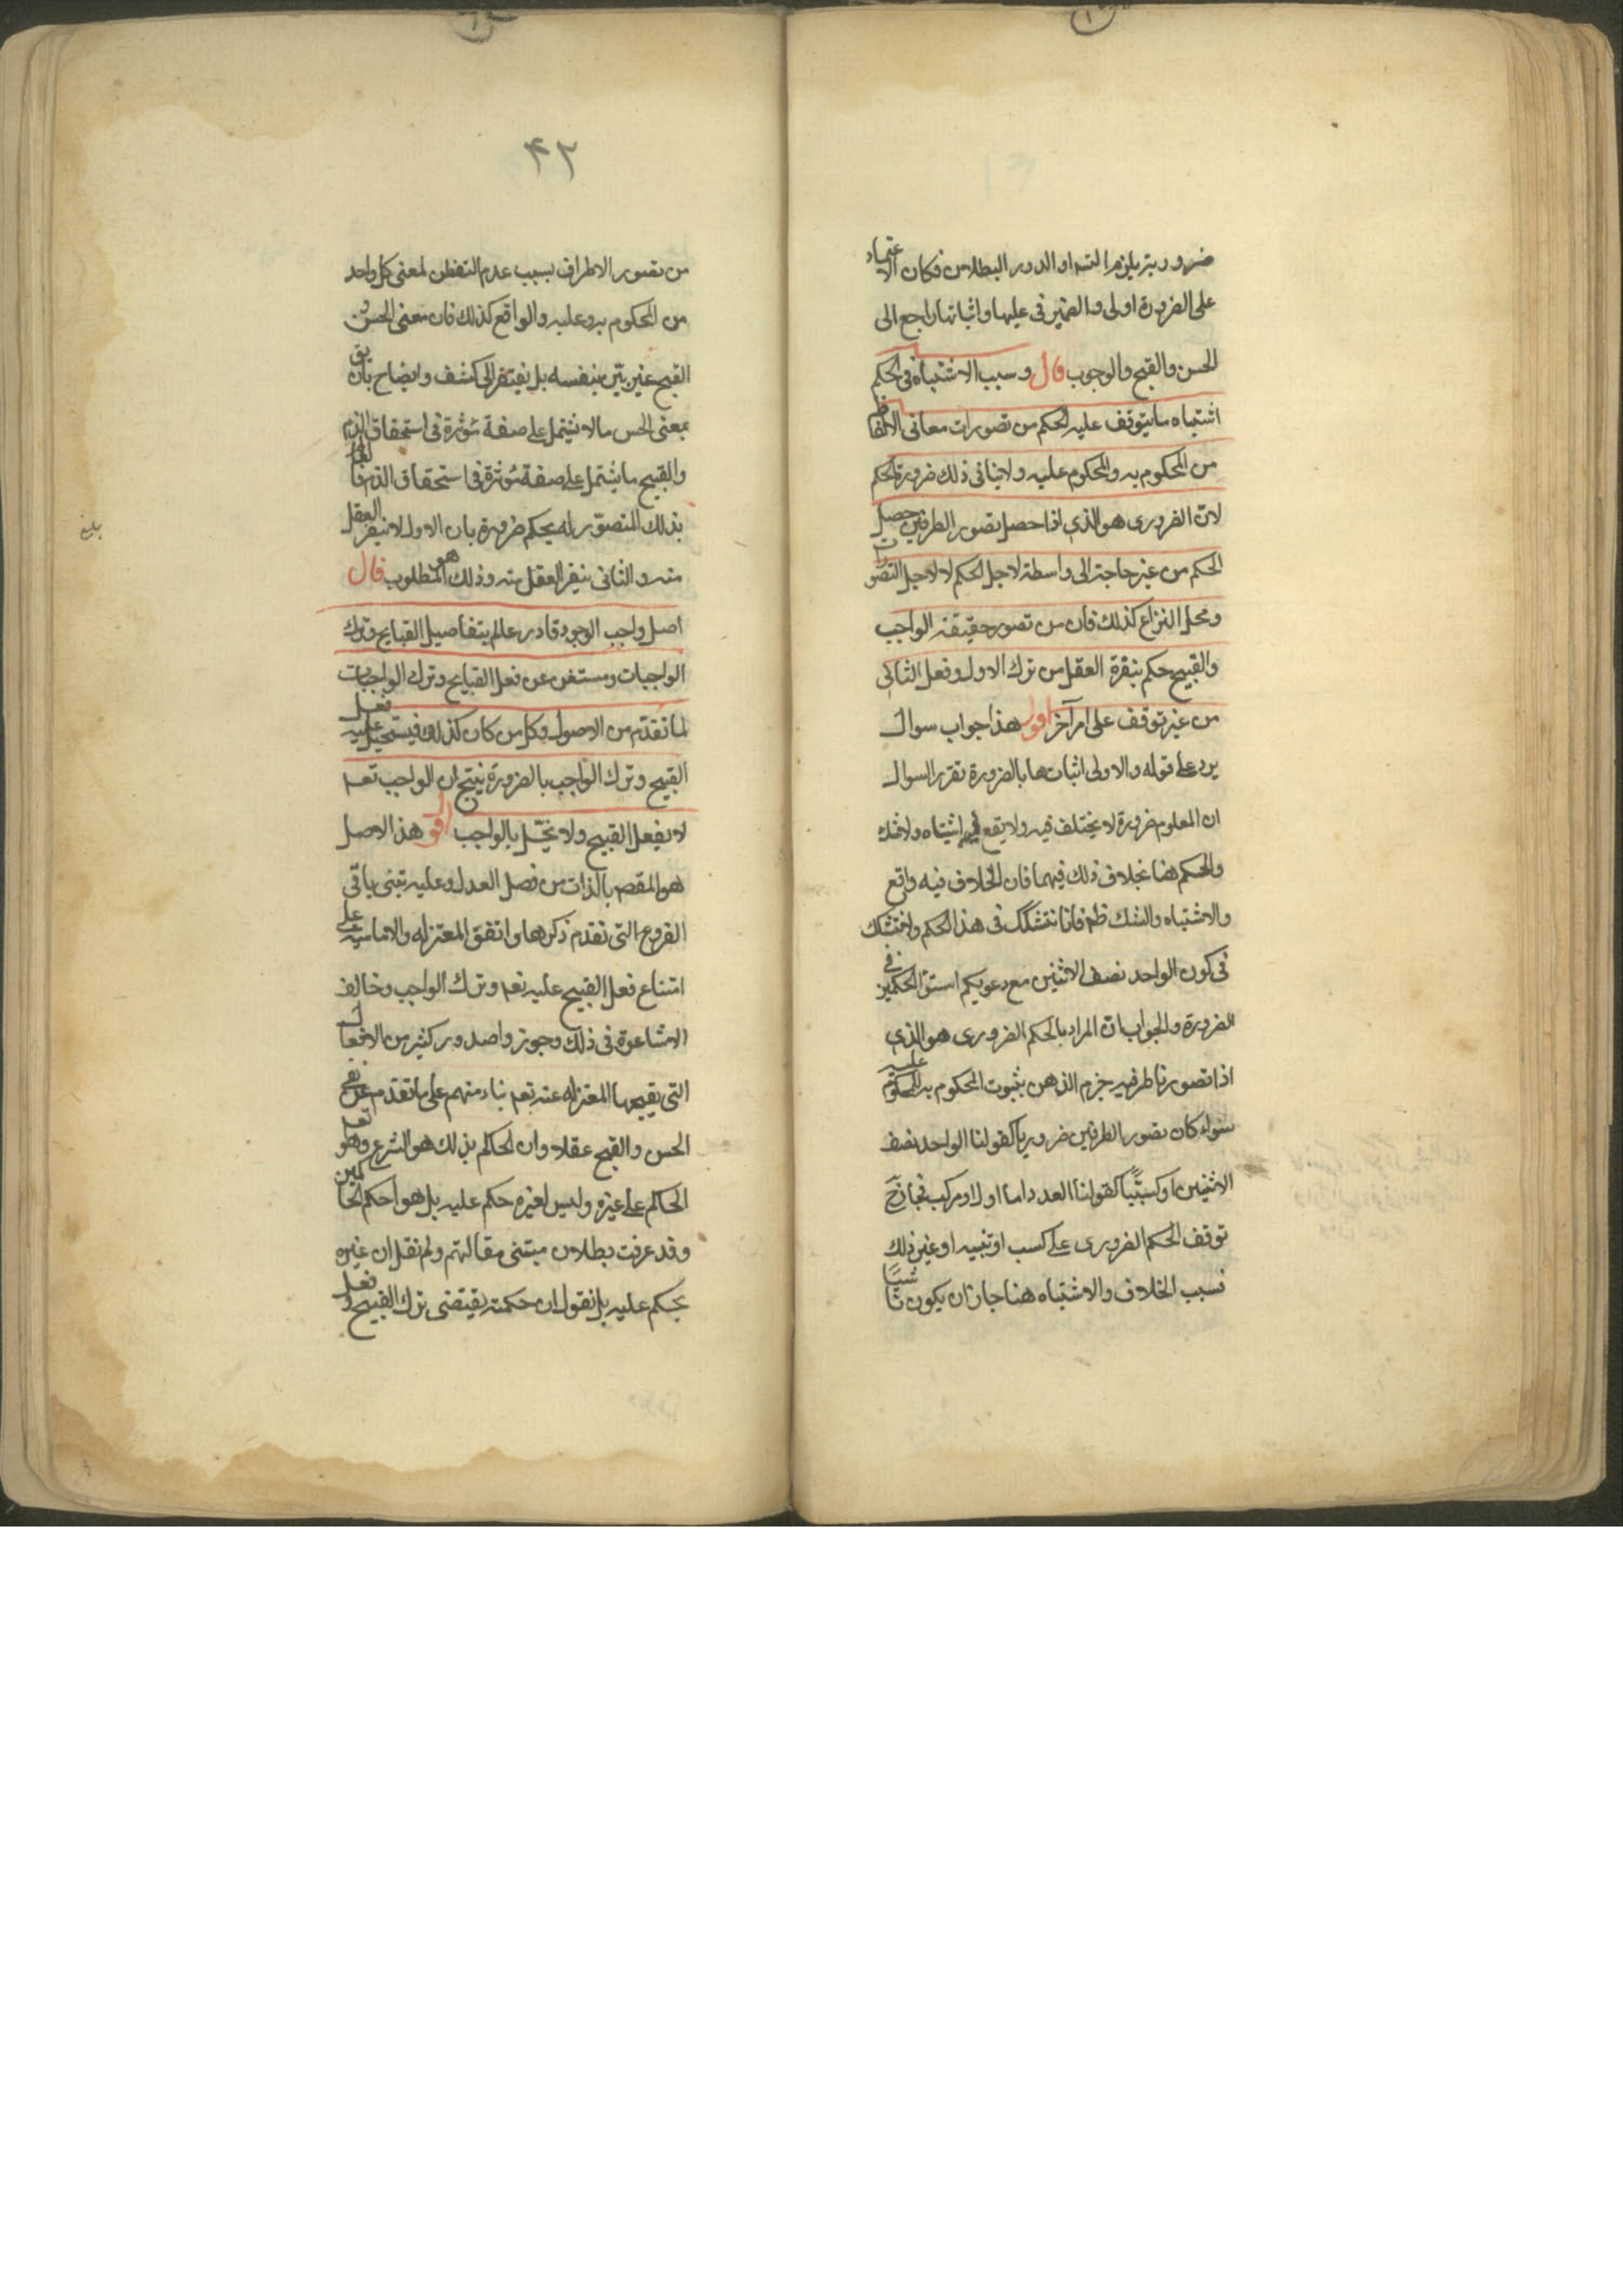 ضرورية يلزم التسه او الدور البطلان فكان الاعتماد
على الضرورة اولى والضمير فى عليها واثباتها راجع الى
الحسن والقبح والوجوب قال وسبب الاشتباه فى الحكم
اشتباه ما يتوقف عليه الحكم من تصورات معانى الالفاظ
من المحكوم به والمحكوم عليه ولا ينافى ذلك ضرورة الحكم
لان الضرورى هو الذى اذا حصل تصور الطرفين حصل
الحكم من غير حاجة الى واسطة لاجل الحكم لا لاجل التصورات
ومحل النزاع كذلك فان من تصور حقيقة الواجب
والقبيح حكم بنفرة العقل من ترك الاول وفعل الثانى
من غير توقف على امر آخر اقول هذا جواب سوال
يرد على قوله والاولى اثباتها بالضرورة تقرير السوال
ان المعلوم ضرورة لا يختلف فيه ولا يقع فيه اشتباه ولا شك
والحكم هنا بخلاف ذلك فيهما فان الخلاف فيه واقع
والاشتباه والشك ظه فانا نتشكك فى هذا الحكم ولا نتشكك
فى كون الواحد نصف الاثنين مع دعويكم استواء الحكمين فى
الضرورة والجواب ان المراد بالحكم الضرورى هو الذى
اذا تصورنا طرفيه جزم الذهن بثبوت المحكوم به للمحكوم عليه
سواء كان تصور الطرفين ضروريا كقولنا الواحد نصف
الاثنين او كسبيا كقولنا العدد اما اول او مركب فجاز ح
توقف الحكم الضرورى على كسب او تنبيه او غير ذلك
فسبب الخلاف والاشتباه هنا جاز ان يكون ناشيا
۴۲
من تصور الاطراف بسبب عدم التفطن لمعنى كل واحد
من المحكوم به وعليه والواقع كذلك فان معنى الحسن و
القبيح غير بين بنفسه بل يفتقر الى كشف وايضاح بان يق
بمعنى الحسن ما لا يشتمل على صفة مؤثرة فى استحقاق الذم
والقبيح ما يشتمل على صفة مؤثرة فى استحقاق الذم فا
بذلك المتصور له يحكم ضرورة بان الاول لا ينفر العقل
منه والثانى ينفر العقل منه وذلك هو المطلوب قال
اصل واجب الوجود قادر عالم بتفاصيل القبايح وترك
الواجبات ومستغن عن فعل القبايح وترك الواجبات
لما تقدم من الاصول وكل من كان كذلك فيستحيل عليه فعل
القبيح وترك الواجب بالضرورة ينتج ان الواجب تعه
لا يفعل القبيح ولا يخل بالواجب اقول هذا الاصل
هو المقصه بالذات من فصل العدل وعليه تبنى باقى
الفروع التى تقدم ذكرها واتفق المعتزله والاماميه على
امتناع فعل القبيح عليه تعه وترك الواجب وخالف
الاشاعرة فى ذلك وجوزوا صدور كثير من الافعال
التى يقبحها المعتزله عنه تعه بناء منهم على ما تقدم من نفى
الحسن والقبح عقلا وان الحاكم بذلك هو الشرع وهو تعه
الحاكم على غيره وليس لغيره حكم عليه بل هو احكم الحاكمين
وقد عرفت بطلان مبتنى مقالتهم ولم نقل ان غيره
يحكم عليه بل نقول ان حكمته يقتضى ترك القبيح وفعل
بلغ